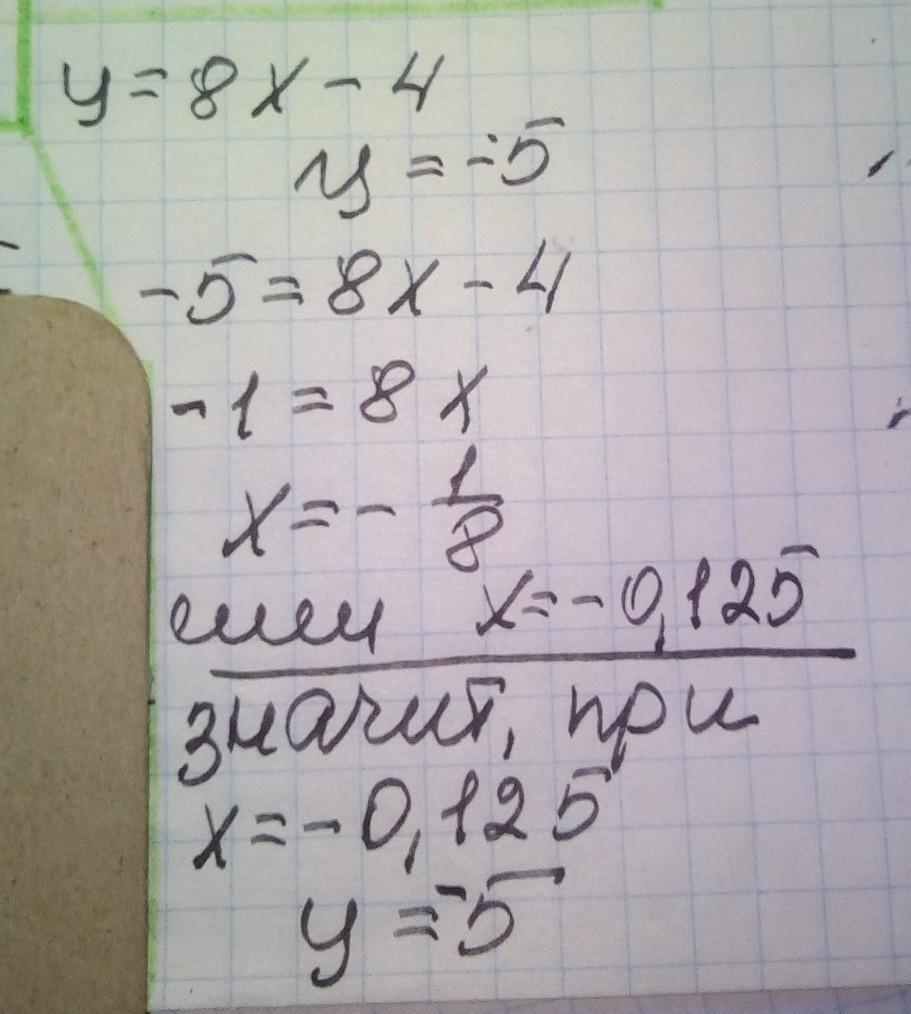 y = 8x - 4
y = -5
-5 = 8x - 4
-1 = 8x
x = - 1/8
или x = -0,125
значит, при
x = -0,125
y = -5